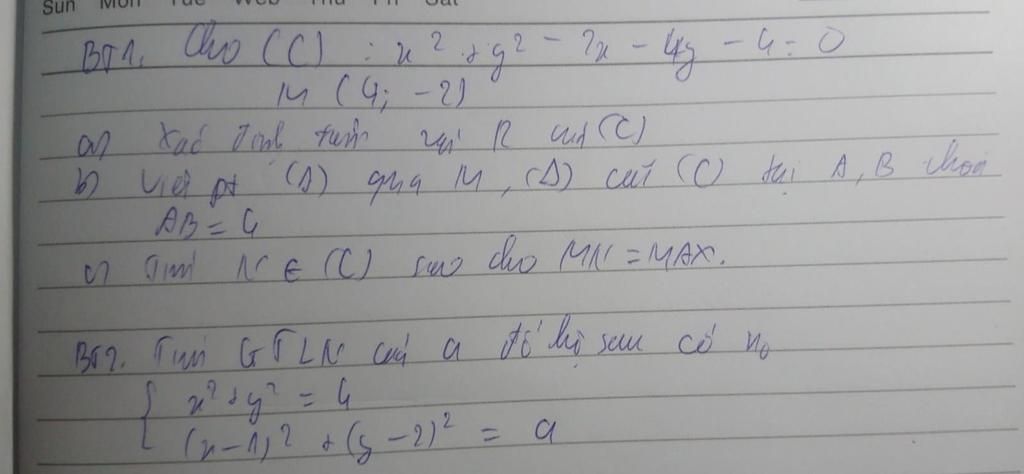 Sun Mon Tue Wed Thu Fri Sat
BT1. Cho (C) : x² + y² - 2x - 4y - 4 = 0
M (4; -2)
a) Xác định tâm và R của (C)
b) Viết pt (Δ) qua M, (Δ) cắt (C) tại A, B thỏa
AB = 4
c) Tìm N ∈ (C) sao cho MN = MAX.
BT2. Tìm GTLN của a để hệ sau có n₀
{ x² + y² = 4
(x - 1)² + (y - 2)² = a